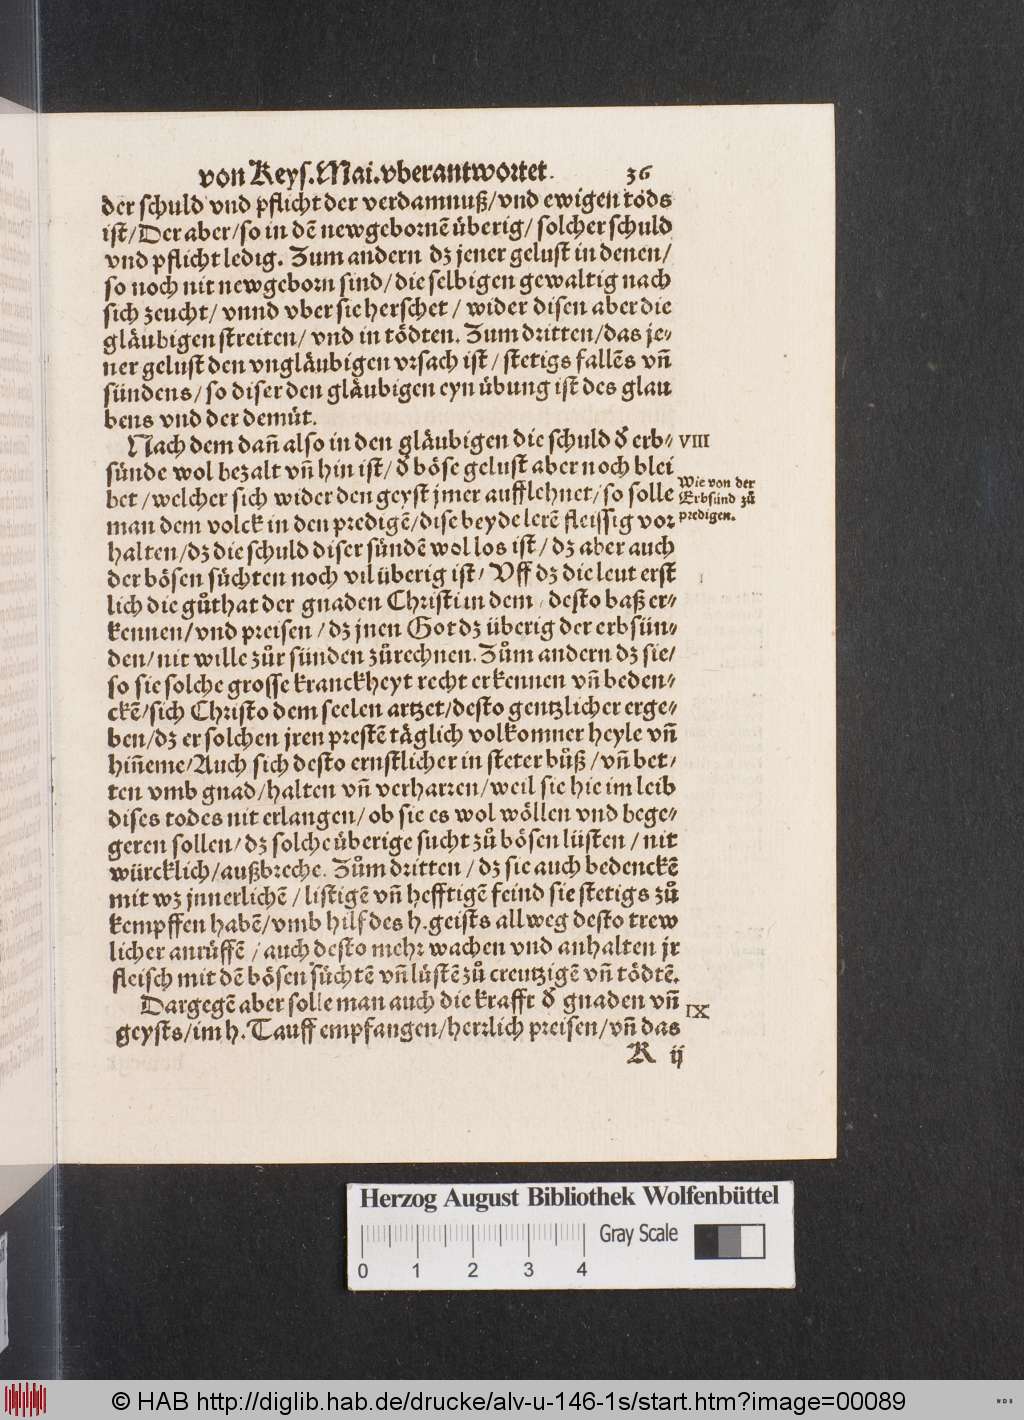 von Keys. Mai. vberantwortet. 36
der schuld vnd pflicht der verdamnuß/vnd ewigen tods
ist/Der aber/so in dē newgebornē überig/ solcher schuld
vnd pflicht ledig. Zum andern dz jener gelust in denen/
so noch nit newgeborn sind/die selbigen gewaltig nach
sich zeucht/ vnnd vber sie herschet / wider disen aber die
gläubigen streiten/ vnd in tödten. Zum dritten/das je-
ner gelust den vngläubigen vrsach ist/ stetigs fallēs vñ
sündens/so diser den gläubigen eyn übung ist des glau
bens vnd der demůt.
Nach dem dañ also in den gläubigen die schuld đ erb-
VIII
sünde wol bezalt vñ hin ist/ đ böse gelust aber noch blei
bet /welcher sich wider den geyst jmer aufflehnet/so solle
Wie von der
Erbsünd zů
predigen.
man dem volck in den predigē/dise beyde lerē fleissig vor
halten/dz die schuld diser sündē wol los ist/ dz aber auch
der bösen süchten noch vil überig ist/ Vff dz die leut erst
lich die gůthat der gnaden Christi in dem/ desto baß er-
kennen/vnd preisen /dz jnen Got dz überig der erbsün-
den/nit wille zůr sünden zůrechnen. Zům andern dz sie/
so sie solche grosse kranckheyt recht erkennen vñ beden-
ckē/sich Christo dem seelen artzet/desto gentzlicher erge-
ben/dz er solchen jren prestē täglich volkomner heyle vñ
hiñeme/Auch sich desto ernstlicher in steter bůß /vñ bet-
ten vmb gnad/halten vñ verharren/weil sie hie im leib
dises todes nit erlangen/ob sie es wol wöllen vnd bege-
geren sollen/dz solche überige sucht zů bösen lüsten / nit
würcklich/außbreche. Zům dritten / dz sie auch bedenckē
mit wz jnnerlichē /listigē vñ hefftigē feind sie stetigs zů
kempffen habē/vmb hilf des h. geists allweg desto trew
licher anrüffē /auch desto mehr wachen vnd anhalten jr
fleisch mit dē bösen süchtē vñ lüstē zů creutzigē vñ tödtē.
Dargegē aber solle man auch die krafft đ gnaden vñ
IX
geysts/im h. Tauff empfangen/herrlich preisen/vñ das
K ij
Herzog August Bibliothek Wolfenbüttel
Gray Scale
0 1 2 3 4
© HAB http://diglib.hab.de/drucke/alv-u-146-1s/start.htm?image=00089